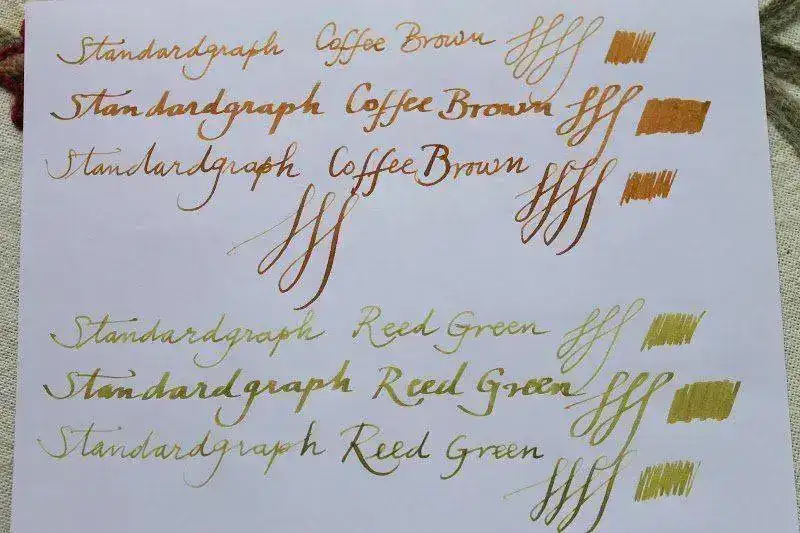 Standardgraph Coffee Brown
Standardgraph Coffee Brown
Standardgraph Coffee Brown
Standardgraph Reed Green
Standardgraph Reed Green
Standardgraph Reed Green